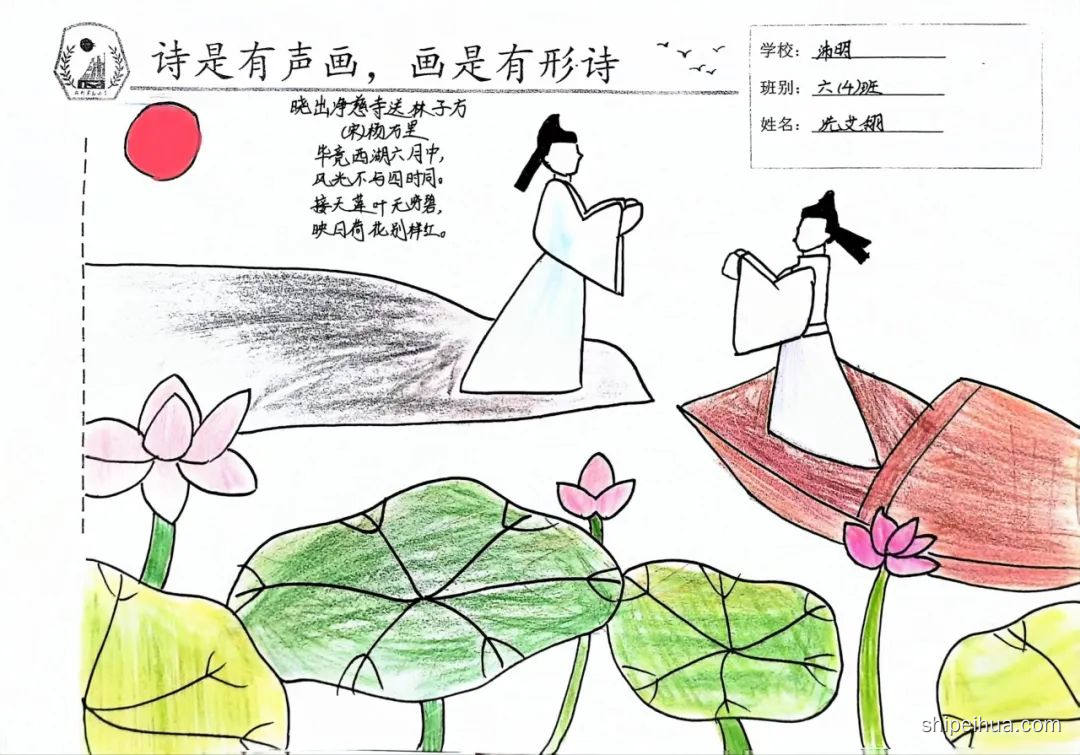 诗是有声画，画是有形诗
学校：沛明
班别：六(4)班
姓名：冼艾栩
晓出净慈寺送林子方
(宋)杨万里
毕竟西湖六月中，
风光不与四时同。
接天莲叶无穷碧，
映日荷花别样红。
shipeihua.com